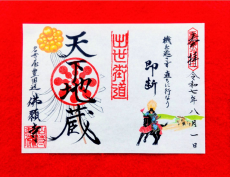 奉拝
令和七年八月一日
機を逃さず直ちに行なう
即断
出世街道
天下地蔵
名古屋豊国通
佛願寺